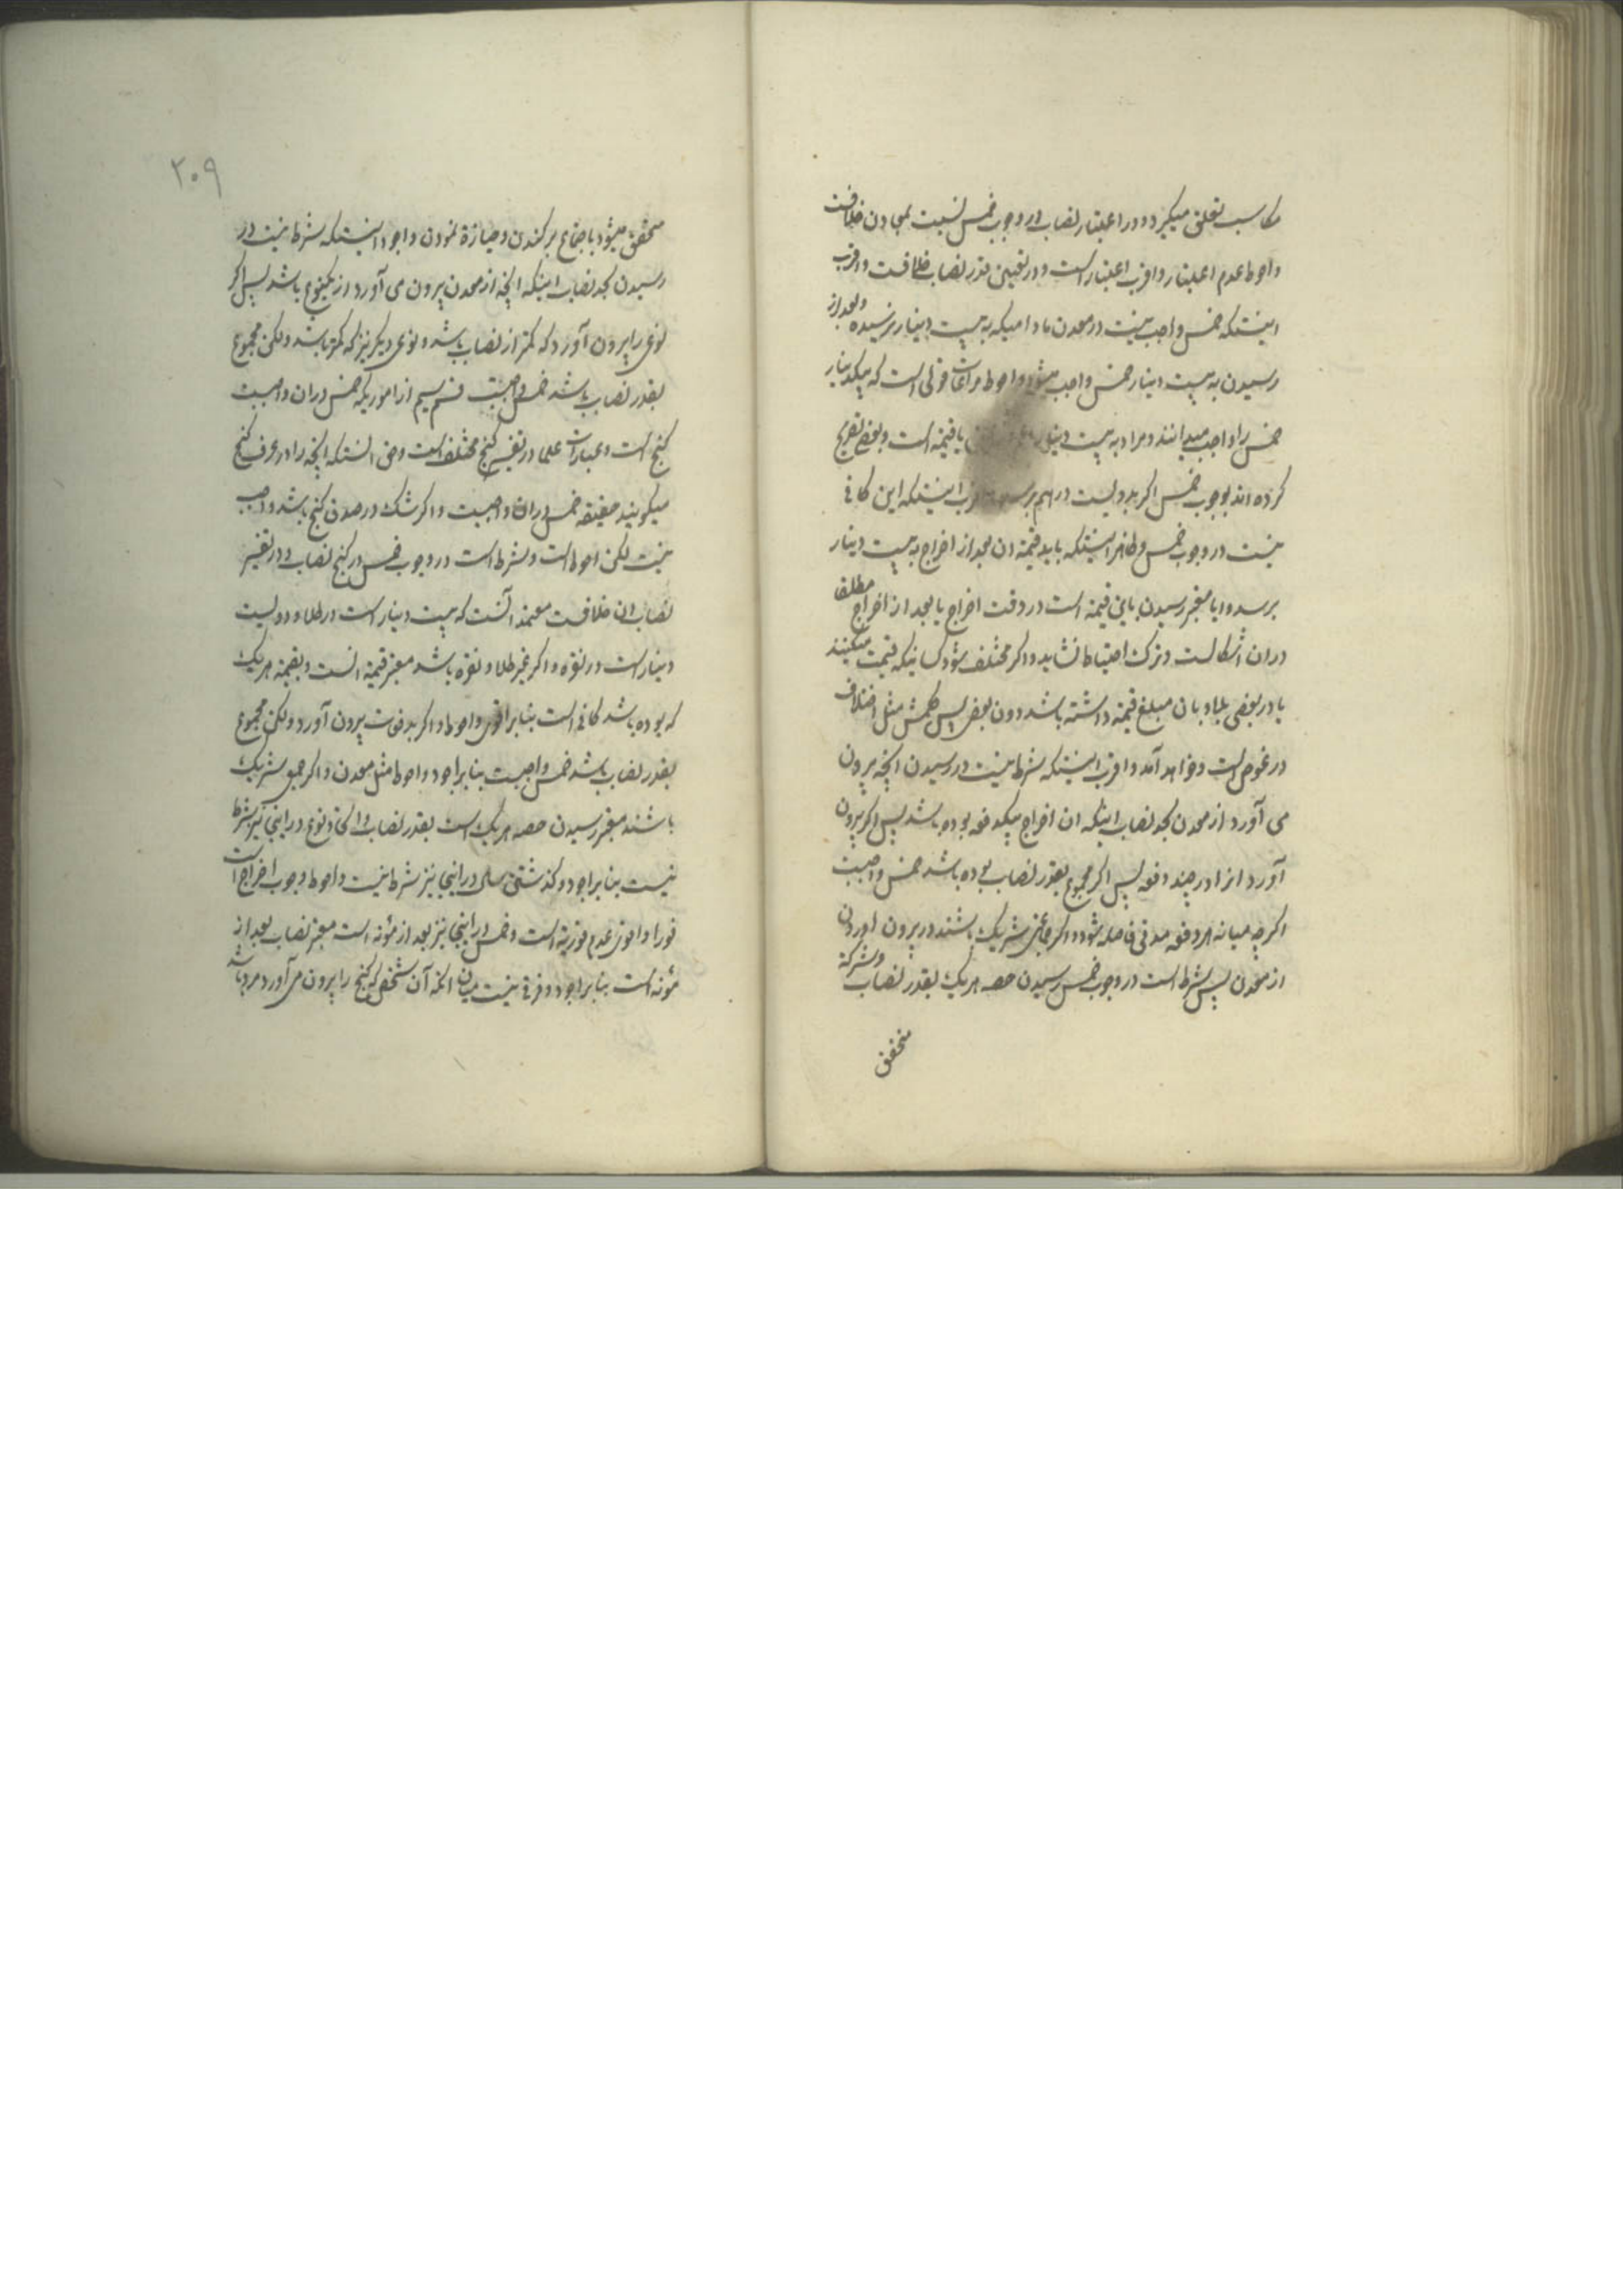 مکاسب تعلق میکیرد و در اعتبار نصاب در وجوب خمس نسبت بمعادن خلافست
و احوط عدم اعتبار و اقرب اعتبار است و در تعیین قدر نصاب خلافست و اقرب
اینستکه خمس واجب نیست در معدن مادامیکه به بیست دینار نرسیده و بعد از
رسیدن به بیست دینار خمس واجب میشود و احوط مراعات قولی است که بیکدینار
خمس را واجب میدانند و مراد به بیست دینار یا قیمة است و بعضی تصریح
کرده اند بوجوب خمس اکر بدویست درهم برسد اینستکه این کافی
نیست در وجوب خمس و ظاهر اینستکه باید قیمة ان بعد از اخراج به بیست دینار
برسد و ایا معتبر رسیدن باین قیمة است در وقت اخراج یا بعد از اخراج مطلقا
در ان اشکالست و ترک احتیاط نشاید و اکر مختلف شود کسانیکه قیمت میکنند
یا در بعضی بلاد بان مبلغ قیمة داشته باشد دون بعض پس حکمش مثل اختلاف
در غوص است و خواهد آمد و اقرب اینستکه شرط نیست در رسیدن انچه بیرون
می آورد از معدن بحد نصاب اینکه ان اخراج بیکدفعه بوده باشد پس اکر بیرون
آورد انرا در چند دفعه پس اکر مجموع بقدر نصاب بوده باشد خمس واجبست
اکرچه میانه هر دفعه مدتی فاصله شود و اکر جماعتی شریک باشند در بیرون اوردن
از معدن پس شرط است در وجوب خمس رسیدن حصه هر یک بقدر نصاب و شرکة
متحقق
۲۰۹
متحقق میشود باجتماع بر کندن و حیازة نمودن و اجود اینستکه شرط نیست در
رسیدن بحد نصاب اینکه انچه از معدن بیرون می آورد از یکنوع باشد پس اکر
نوعی را بیرون آورد که کمتر از نصاب باشد و نوعی دیکر نیز که کمتر باشد ولکن مجموع
بقدر نصاب باشد خمس واجبست قسم سیم از اموریکه خمس در ان واجبست
کنج است و عبارات علما در تفسیر کنج مختلف است و حق انستکه انچه را در عرف کنج
میکویند حقیقة خمس در ان واجبست و اکر شک در صدق کنج باشد واجب
نیست لکن احوط است و شرط است در وجوب خمس در کنج نصاب و در تفسیر
نصاب ان خلافست معتمد آنست که بیست دینار است در طلا و دویست
دینار است در نقره و اکر غیر طلا و نقره باشد معتبر قیمة انست و بقیمة هر یک
که بوده باشد کافی است بنابر اقوی و احوط و اکر بدفعات بیرون آورد ولکن مجموع
بقدر نصاب باشد خمس واجبست بنابر اجود و احوط مثل معدن و اکر جمعی شریک
باشند معتبر رسیدن حصه هر یک است بقدر نصاب و اتحاد نوع در اینجا نیز شرط
نیست بنابر اجود و کذشتن سال در اینجا نیز شرط نیست و احوط وجوب اخراج است
فورا و اقوی عدم فوریة است و خمس در اینجا نیز بعد از مؤنه است معتبر نصاب بعد از
مؤنه است بنابر اجود و فرقی نیست میان انکه آن شخص که کنج را بیرون می آورد مرد باشد